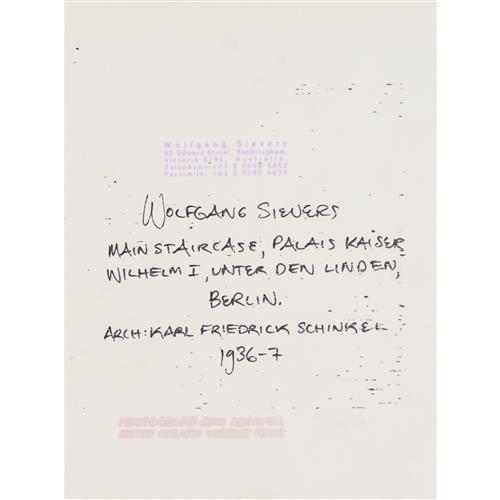 Wolfgang Sievers
Victoria 3191, Australia.
WOLFGANG SIEVERS
MAIN STAIRCASE, PALAIS KAISER
WILHELM I, UNTER DEN LINDEN,
BERLIN.
ARCH: KARL FRIEDRICK SCHINKEL
1936-7